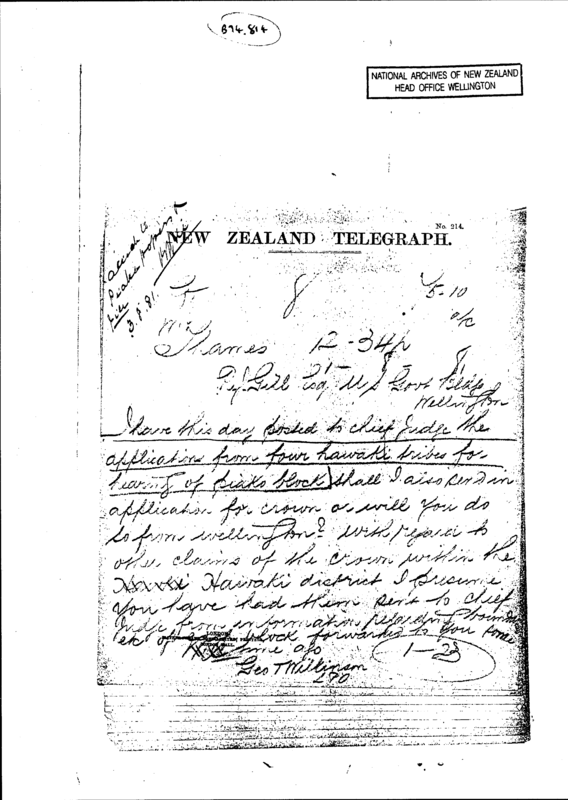 874.814
NATIONAL ARCHIVES OF NEW ZEALAND
HEAD OFFICE WELLINGTON
No. 214.
NEW ZEALAND TELEGRAPH.
Piako papers
file
3.8.81.
8
5-10
Thames 12-34p
Gill Esq U S Govt Bldgs
Wellington
I have this day posted to chief Judge the
application from four hawaki tribes for
hearing of piako block) shall I also send in
application for crown or will you do
so from wellington? with regard to
other claims of the crown within the
Hawaki district I presume
you have had them sent to chief
Judge from information regarding
etc of block forwarded to you some
time ago
Geo T Wilkinson
LPO
1-23